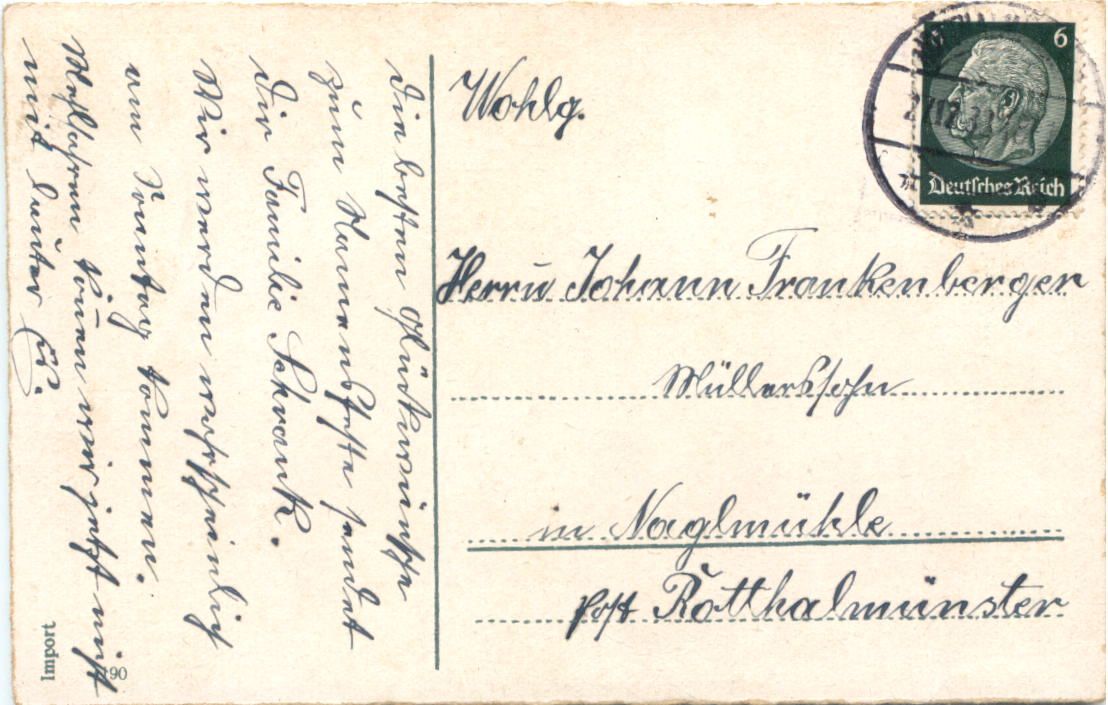 Die besten Glückwünsche
zum Namensfeste sendet
Dir Familie Schrank.
Wir werden wahrscheinlich
am Sonntag kommen.
können wir jetzt nicht
mit lauter
Import
190
Wohlg.
Herrn Johann Frankenberger
Müllerssohn
in Naglmühle
Post Rotthalmünster
6
Deutsches Reich